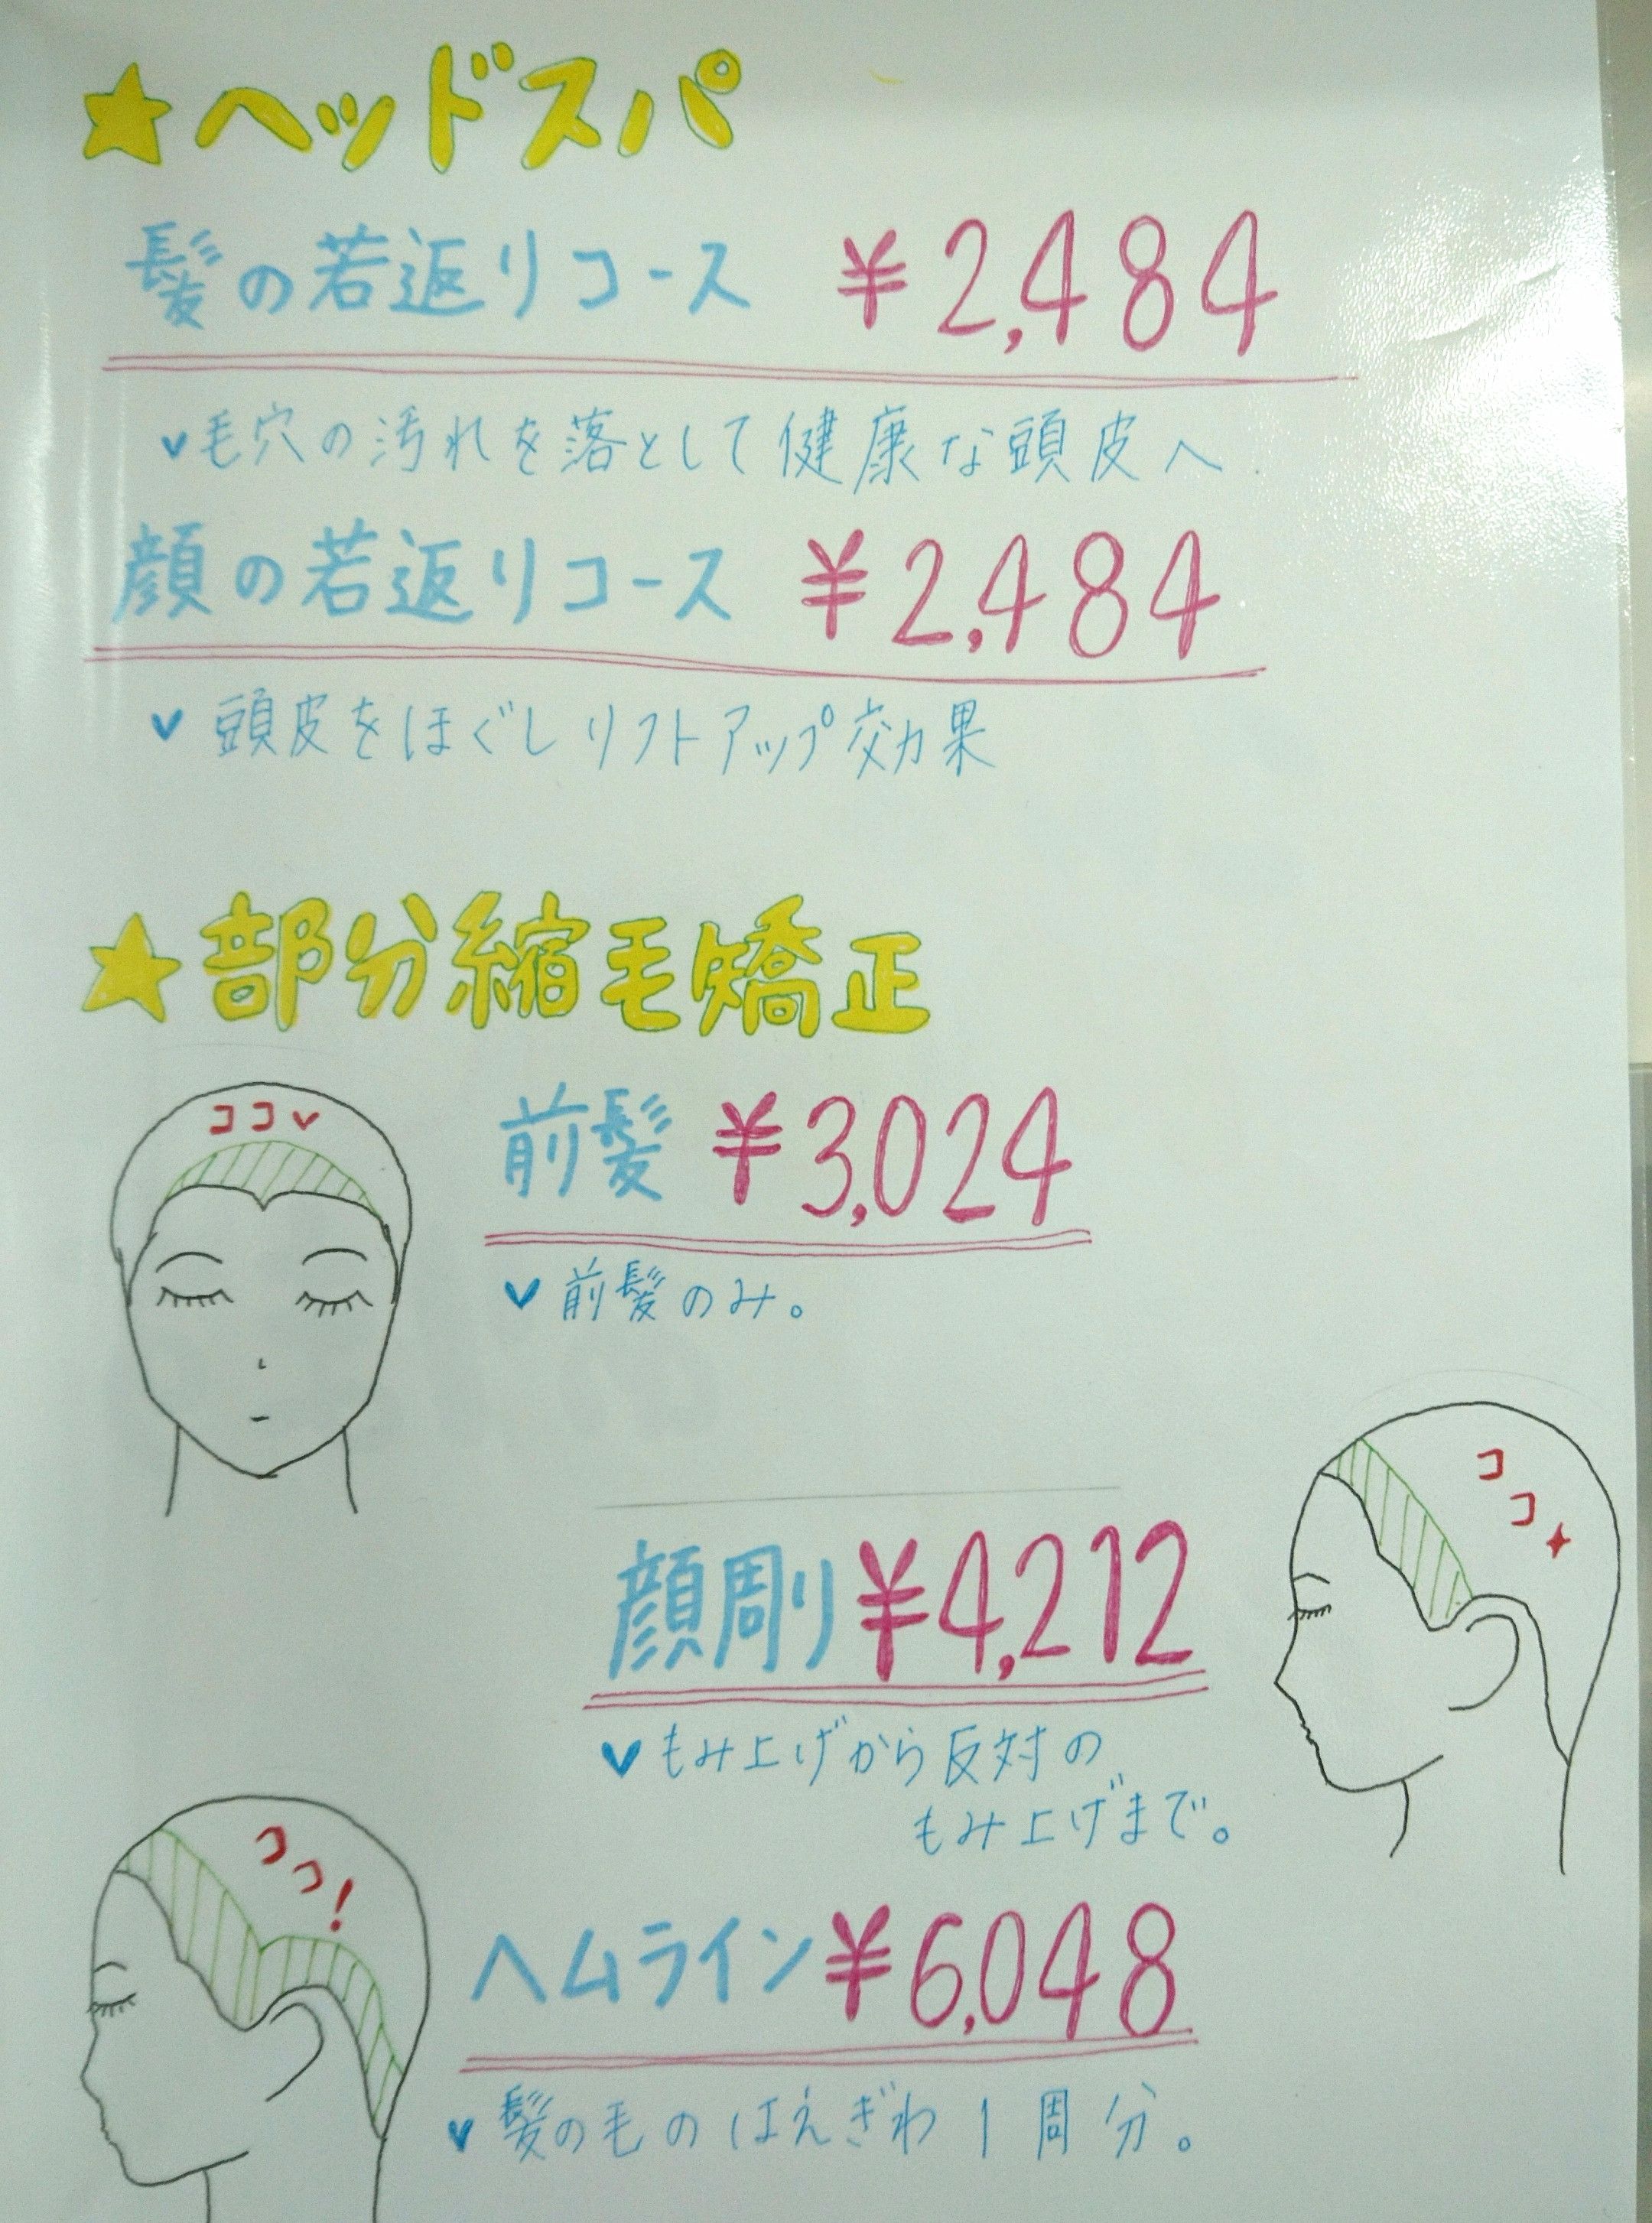 ★ヘッドスパ
髪の若返りコース ¥2,484
✓毛穴の汚れを落として健康な頭皮へ
顔の若返りコース ¥2,484
✓頭皮をほぐしリフトアップ効果
★部分縮毛矯正
ココ✓
前髪 ¥3,024
✓前髪のみ。
ココ
顔周り ¥4,212
✓もみ上げから反対の
もみ上げまで。
ココ!
ヘムライン ¥6,048
✓髪の毛のはえぎわ1周分。